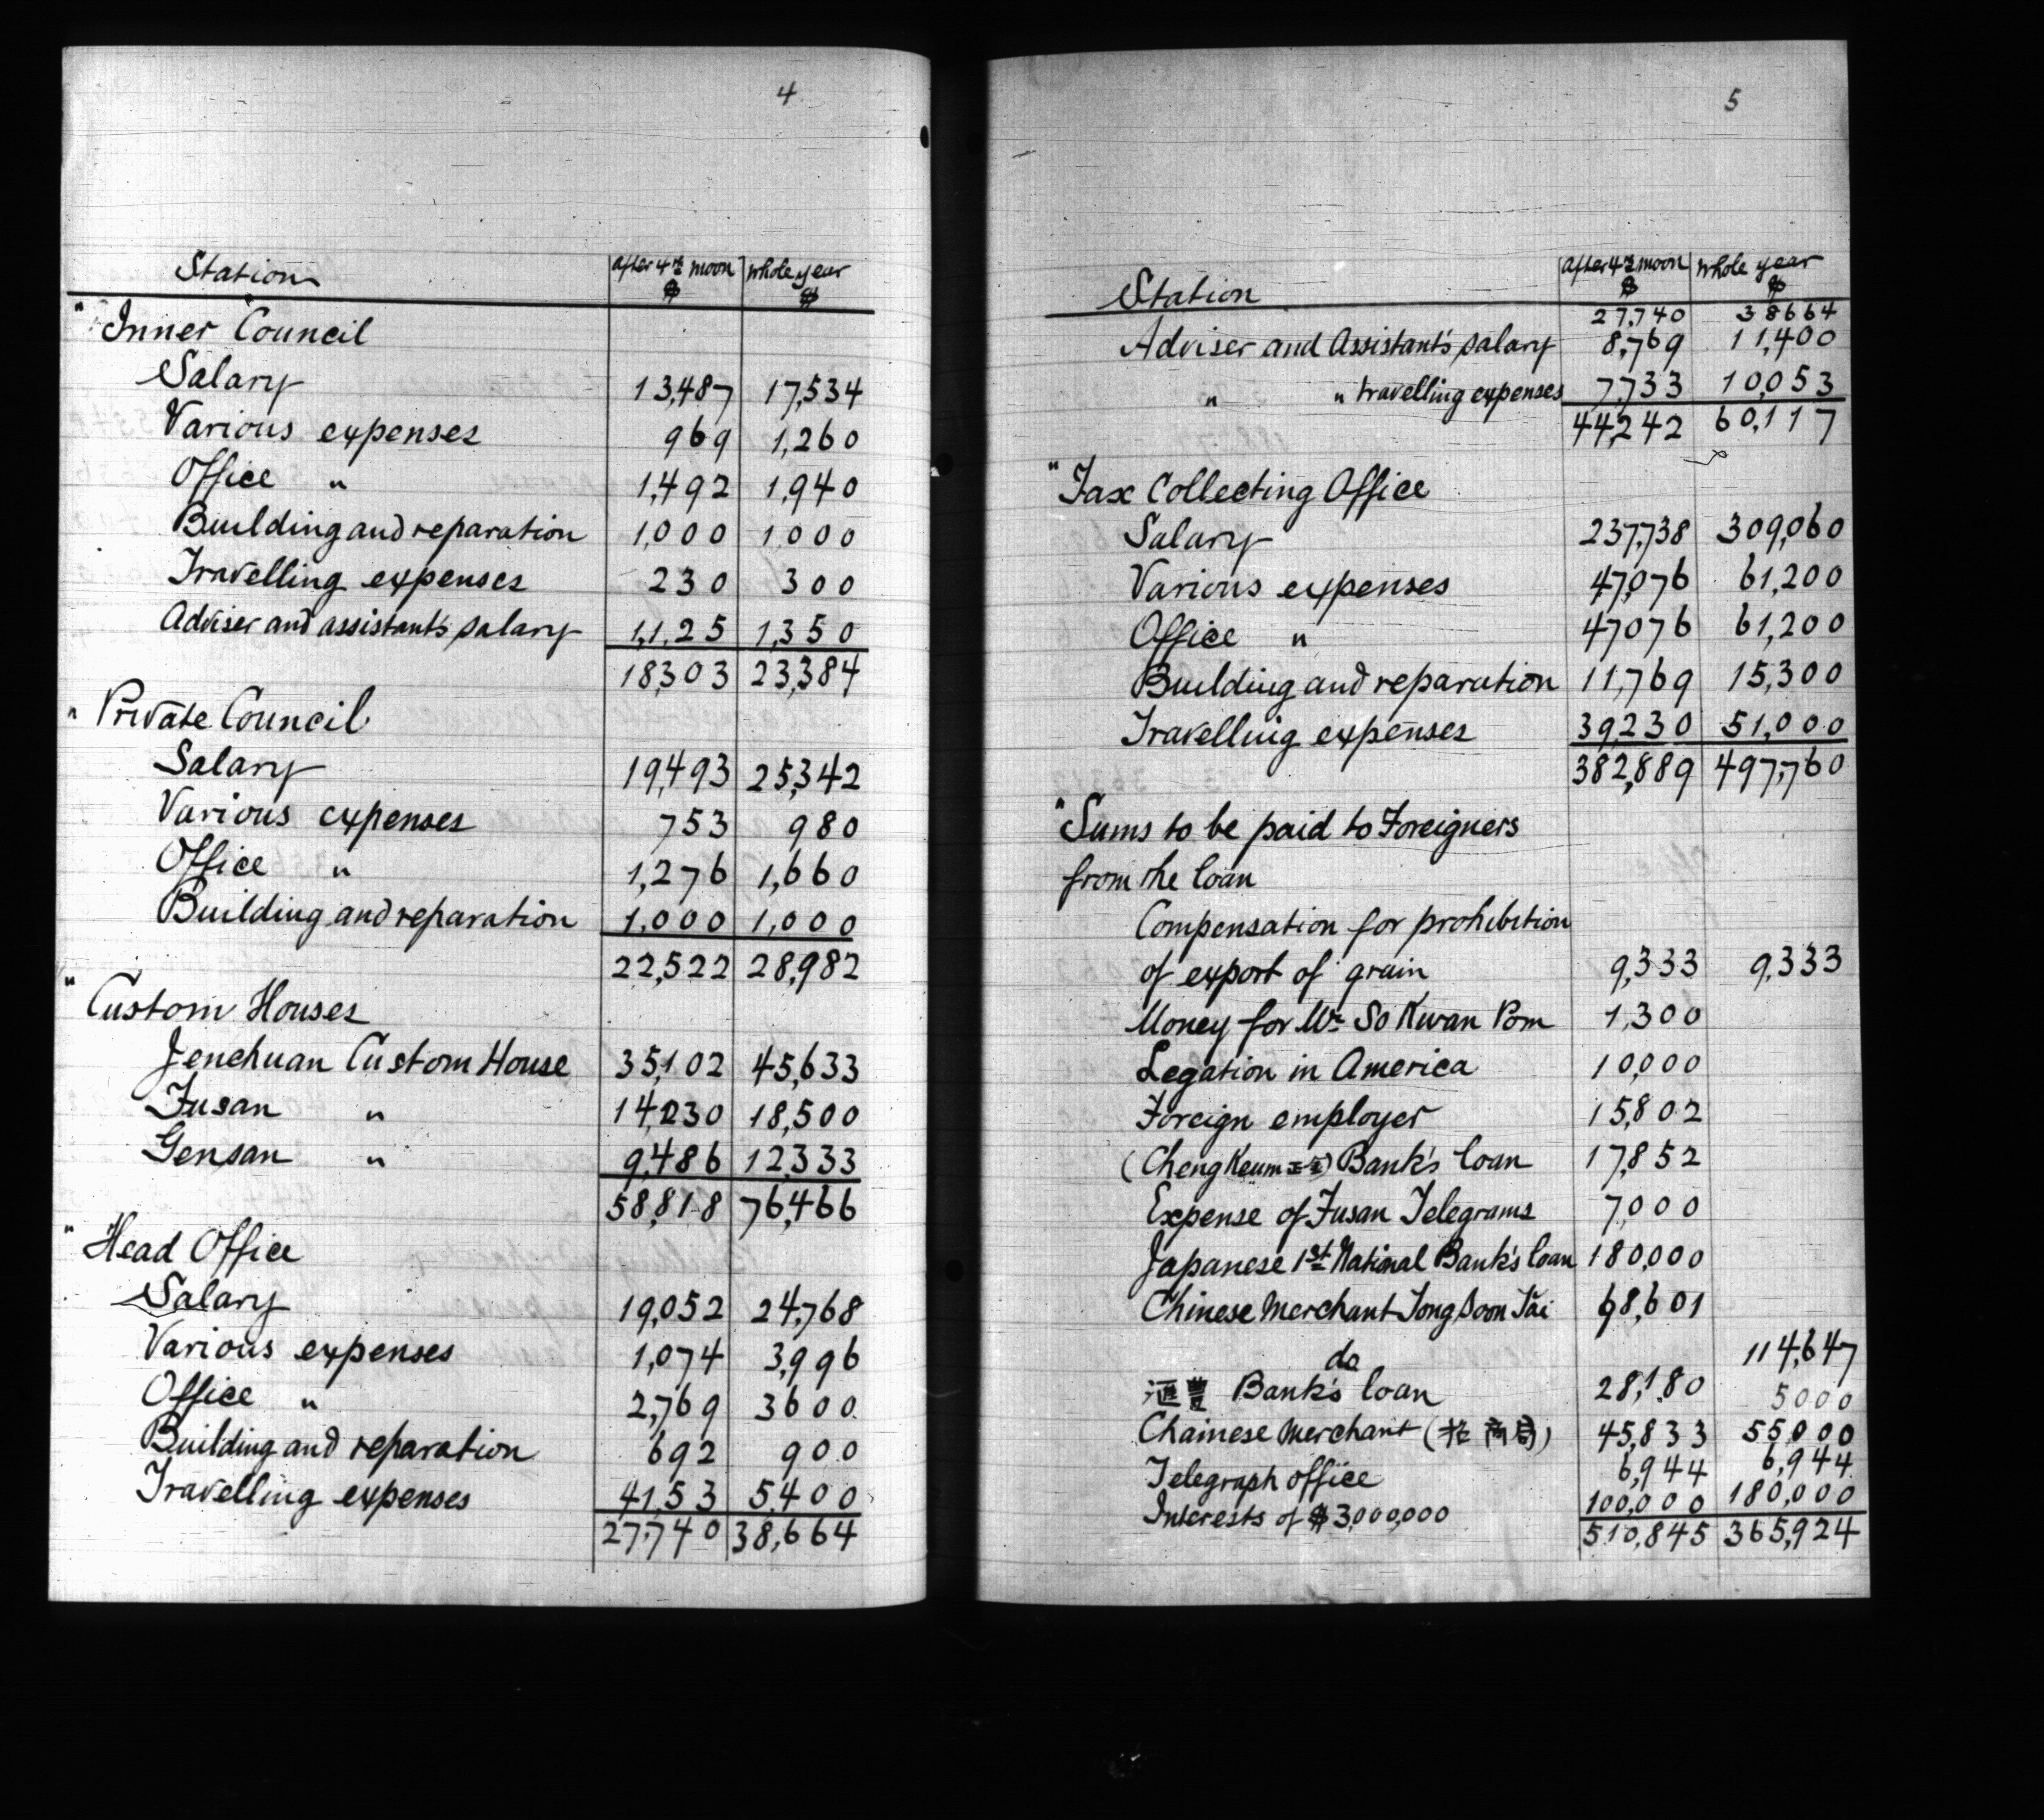 4
Station after 4th moon whole year
$ $
" Inner Council
Salary 13,487 17,534
Various expenses 969 1,260
Office " 1,492 1,940
Building and reparation 1,000 1,000
Travelling expenses 230 300
Adviser and assistant's salary 1,125 1,350
18,303 23,384
" Private Council
Salary 19,493 25,342
Various expenses 753 980
Office " 1,276 1,660
Building and reparation 1,000 1,000
22,522 28,982
" Custom Houses
Jenchuan Custom House 35,102 45,633
Fusan " 14,230 18,500
Gensan " 9,486 12,333
58,818 76,466
" Head Office
Salary 19,052 24,768
Various expenses 1,074 3,996
Office " 2,769 3600
Building and reparation 692 900
Travelling expenses 4,153 5,400
27,740 38,664
5
Station after 4th moon whole year
$ $
27,740 38664
Adviser and Assistant's salary 8,769 11,400
" " travelling expenses 7,733 10,053
44,242 60,117
" Tax Collecting Office
Salary 237,738 309,060
Various expenses 47,076 61,200
Office " 47,076 61,200
Building and reparation 11,769 15,300
Travelling expenses 39,230 51,000
382,889 497,760
" Sums to be paid to Foreigners
from the loan
Compensation for prohibition
of export of grain 9,333 9,333
Money for Mr So Kwan Pom 1,300
Legation in America 10,000
Foreign employer 15,802
(Cheng Keum 正金) Bank's loan 17,852
Expense of Fusan Telegrams 7,000
Japanese 1st National Bank's loan 180,000
Chinese Merchant Tong Soon Tai 68,601
do 114,647
滙豊 Bank's loan 28,180 5000
Chainese Merchant (招商局) 45,833 55,000
Telegraph office 6,944 6,944
Interests of $3,000,000 100,000 180,000
510,845 365,924